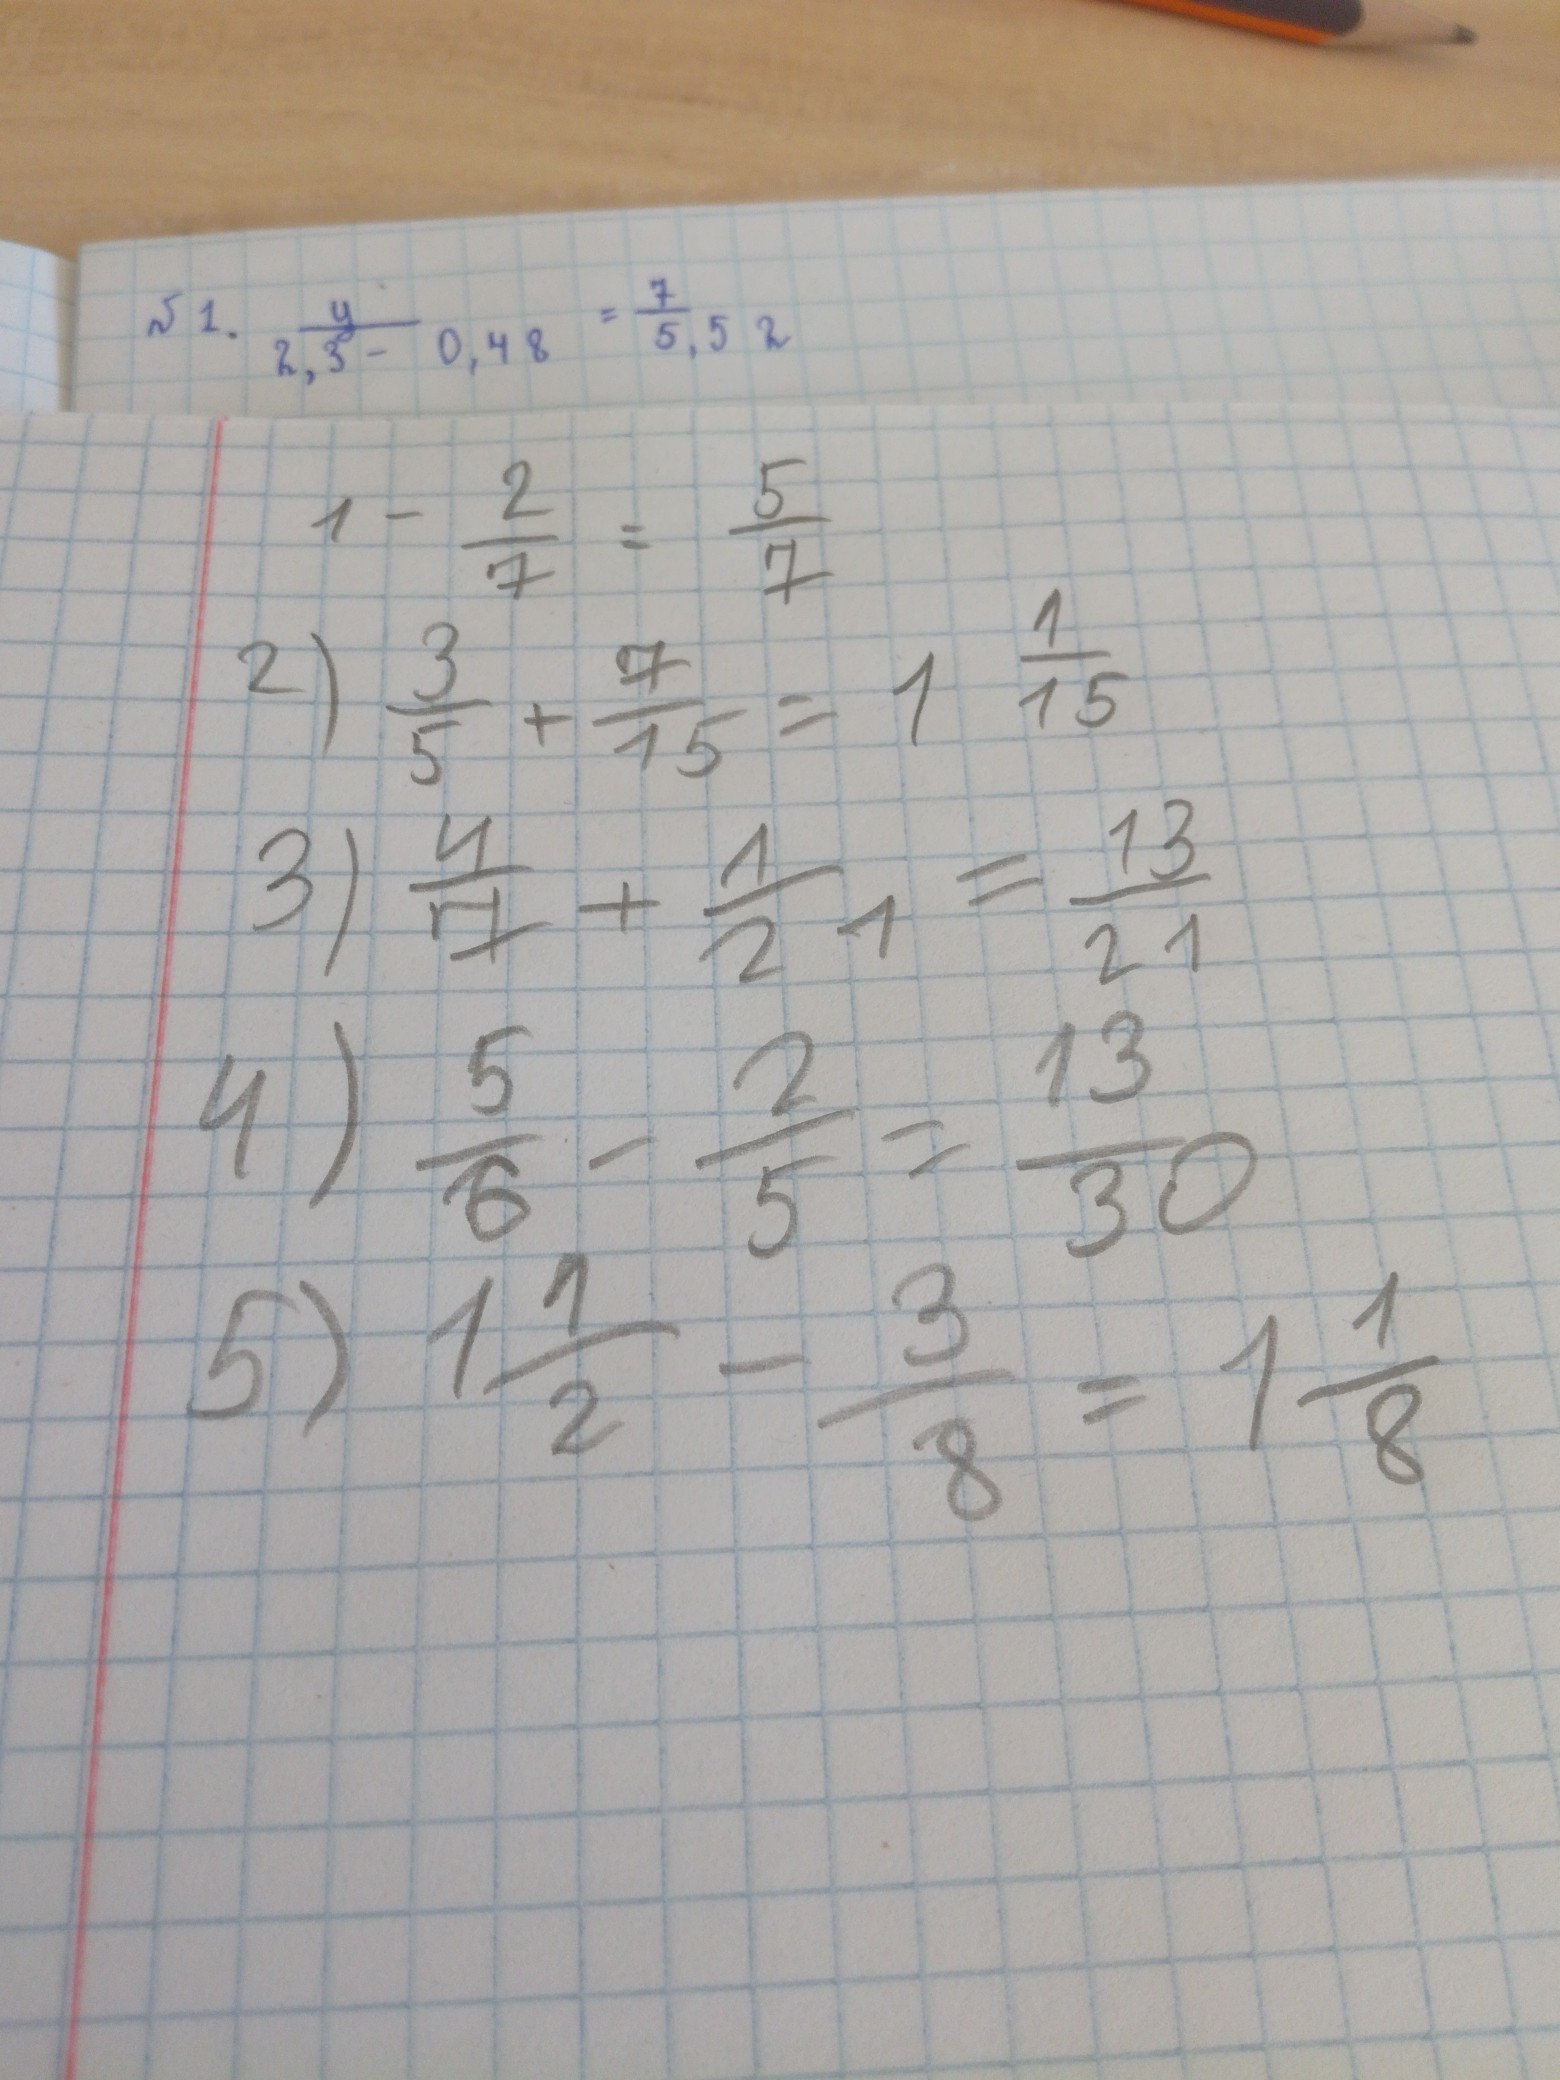 №1. 4/2,3- 0,48 = 7/5,52
1 - 2/7 = 5/7
2) 3/5 + 7/15 = 1 1/15
3) 4/7 + 1/21 = 13/21
4) 5/6 - 2/5 = 13/30
5) 1 1/2 - 3/8 = 1 1/8